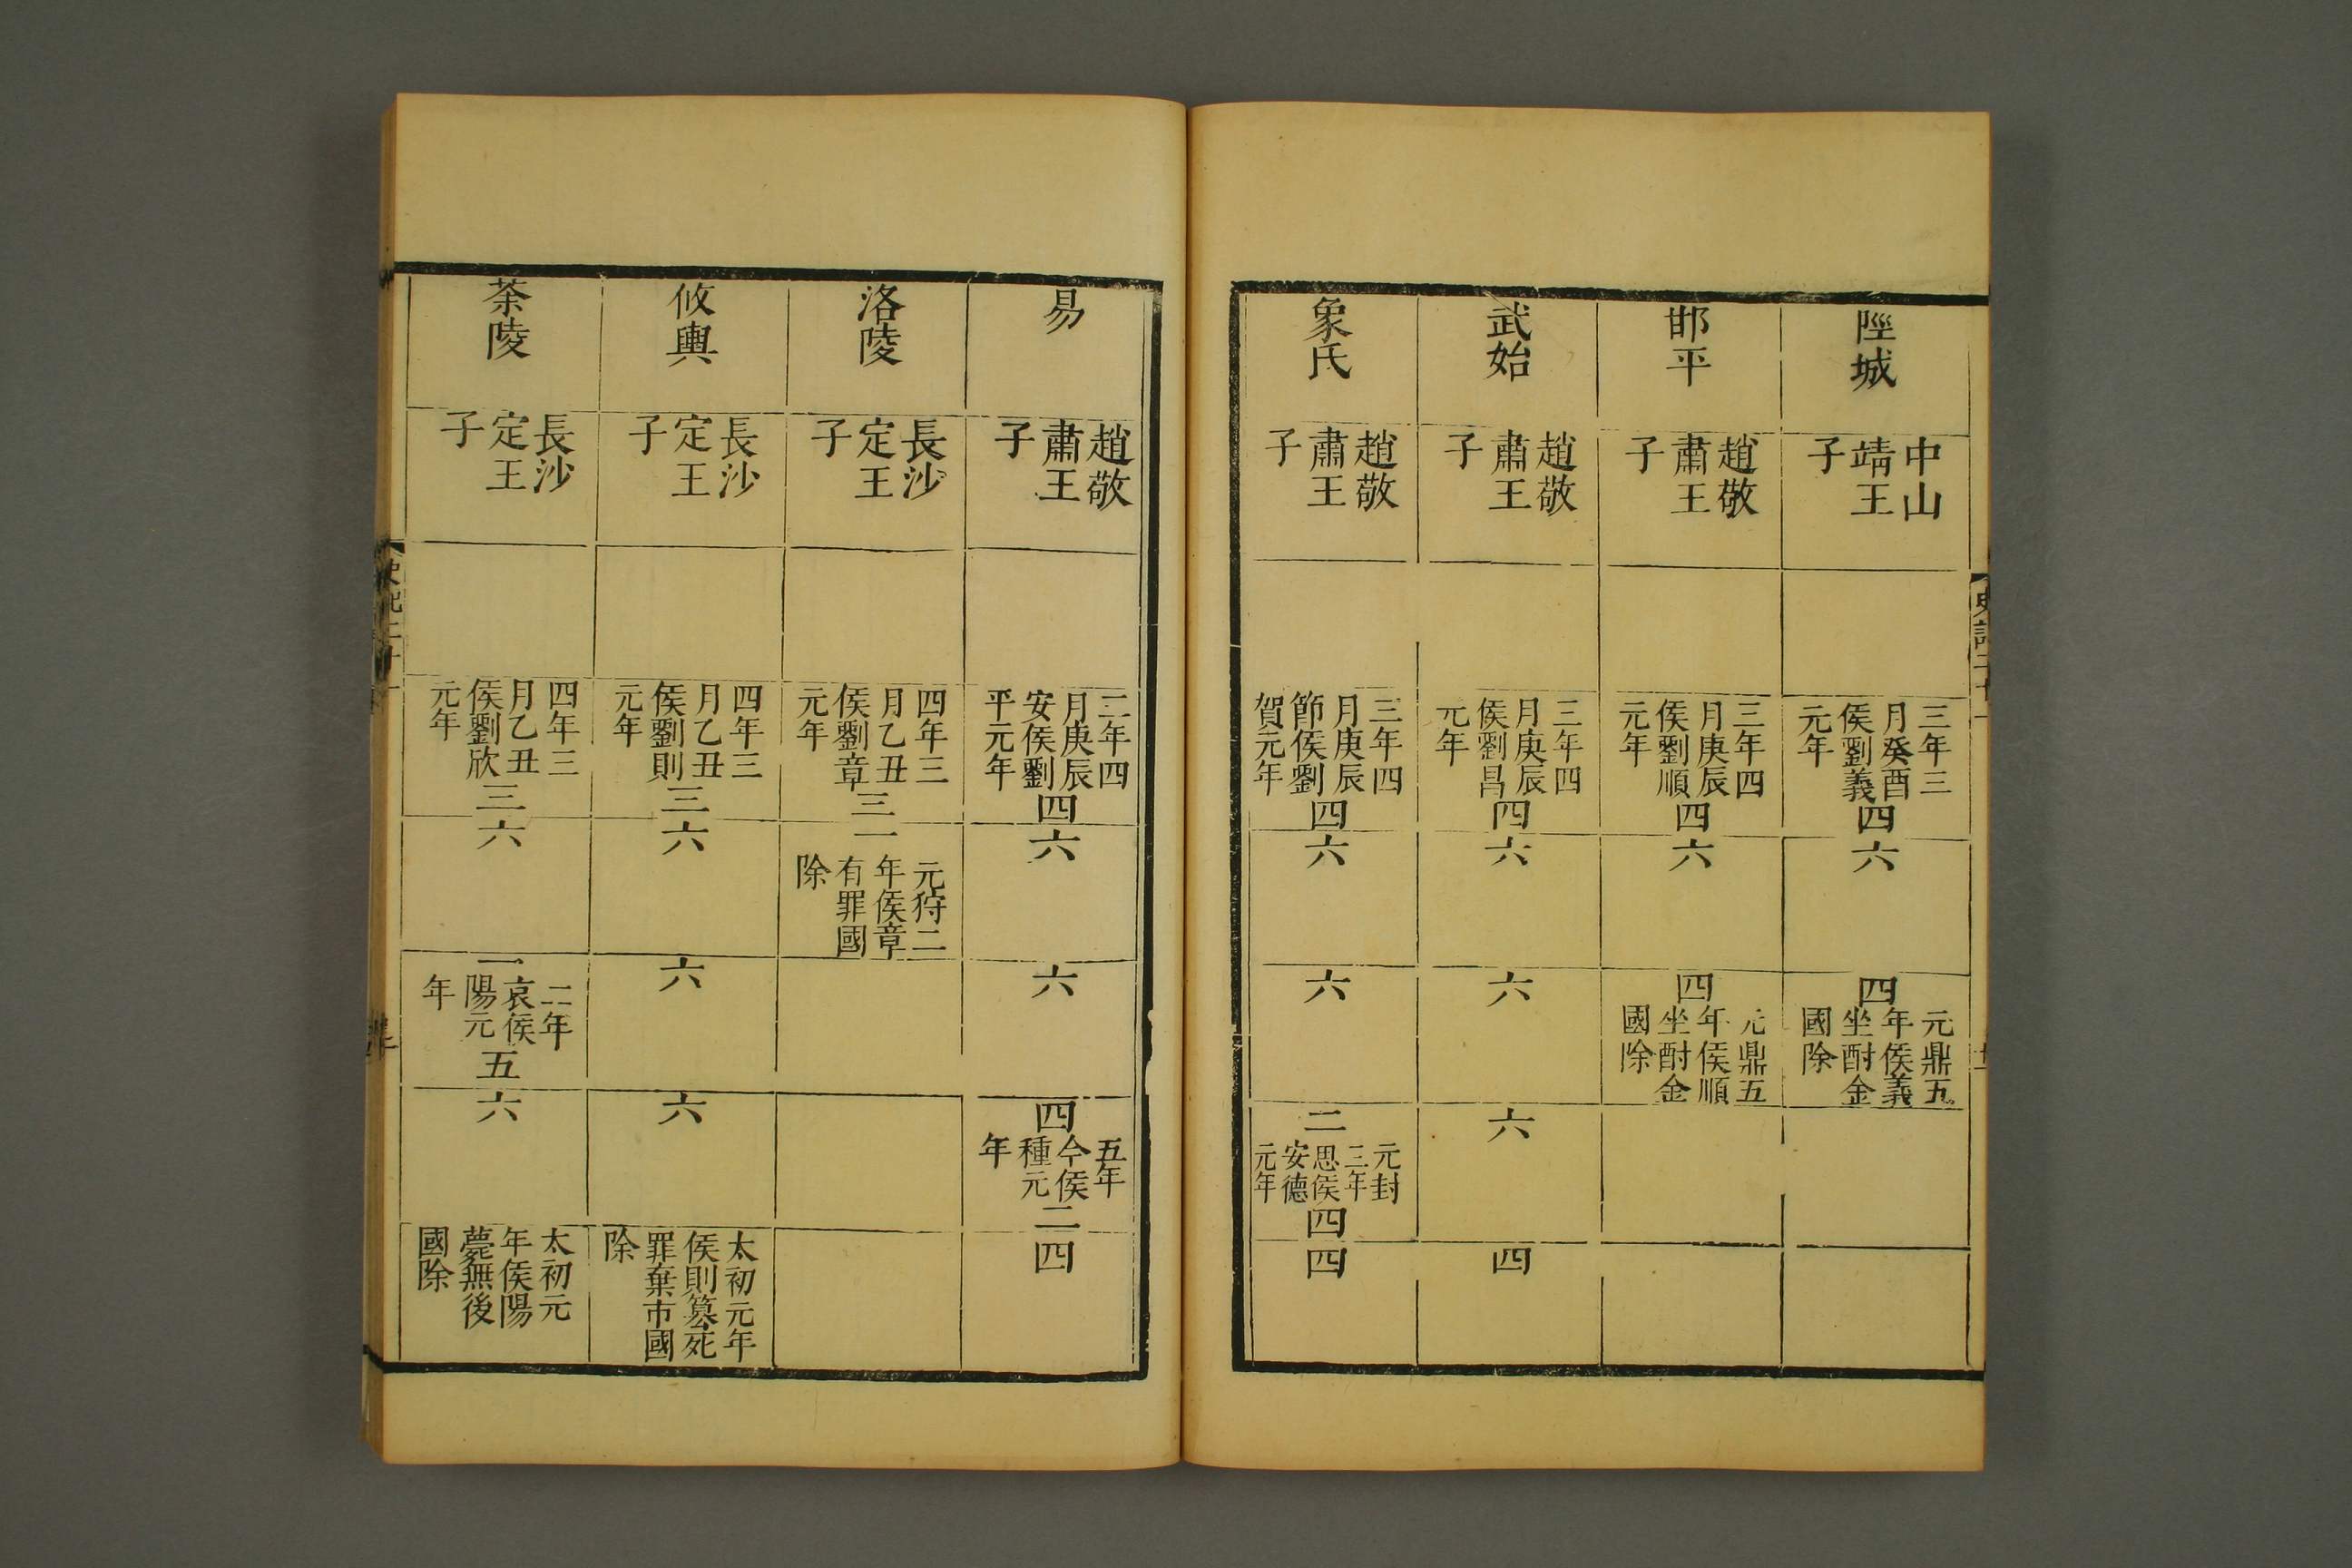 陘城
中山
靖王
子
三年三
月癸酉
侯劉義
元年
四
六
四
元鼎五
年侯義
坐酎金
國除
邯平
趙敬
肅王
子
三年四
月庚辰
侯劉順
元年
四
六
四
元鼎五
年侯順
坐酎金
國除
武始
趙敬
肅王
子
三年四
月庚辰
侯劉昌
元年
四
六
六
六
四
象氏
趙敬
肅王
子
三年四
月庚辰
節侯劉
賀元年
四
六
六
二
元封
三年
思侯
安德
元年
四
四
易
趙敬
肅王
子
二年四
月庚辰
安侯劉
平元年
四
六
六
四
五年
今侯
種元
年
二
四
洛陵
長沙
定王
子
四年三
月乙丑
侯劉章
元年
三
一
元狩二
年侯章
有罪國
除
攸輿
長沙
定王
子
四年三
月乙丑
侯劉則
元年
三
六
六
六
太初元年
侯則篡死
罪棄市國
除
茶陵
長沙
定王
子
四年三
月乙丑
侯劉欣
元年
三
六
一
二年
哀侯
陽元
年
五
六
太初元
年侯陽
薨無後
國除